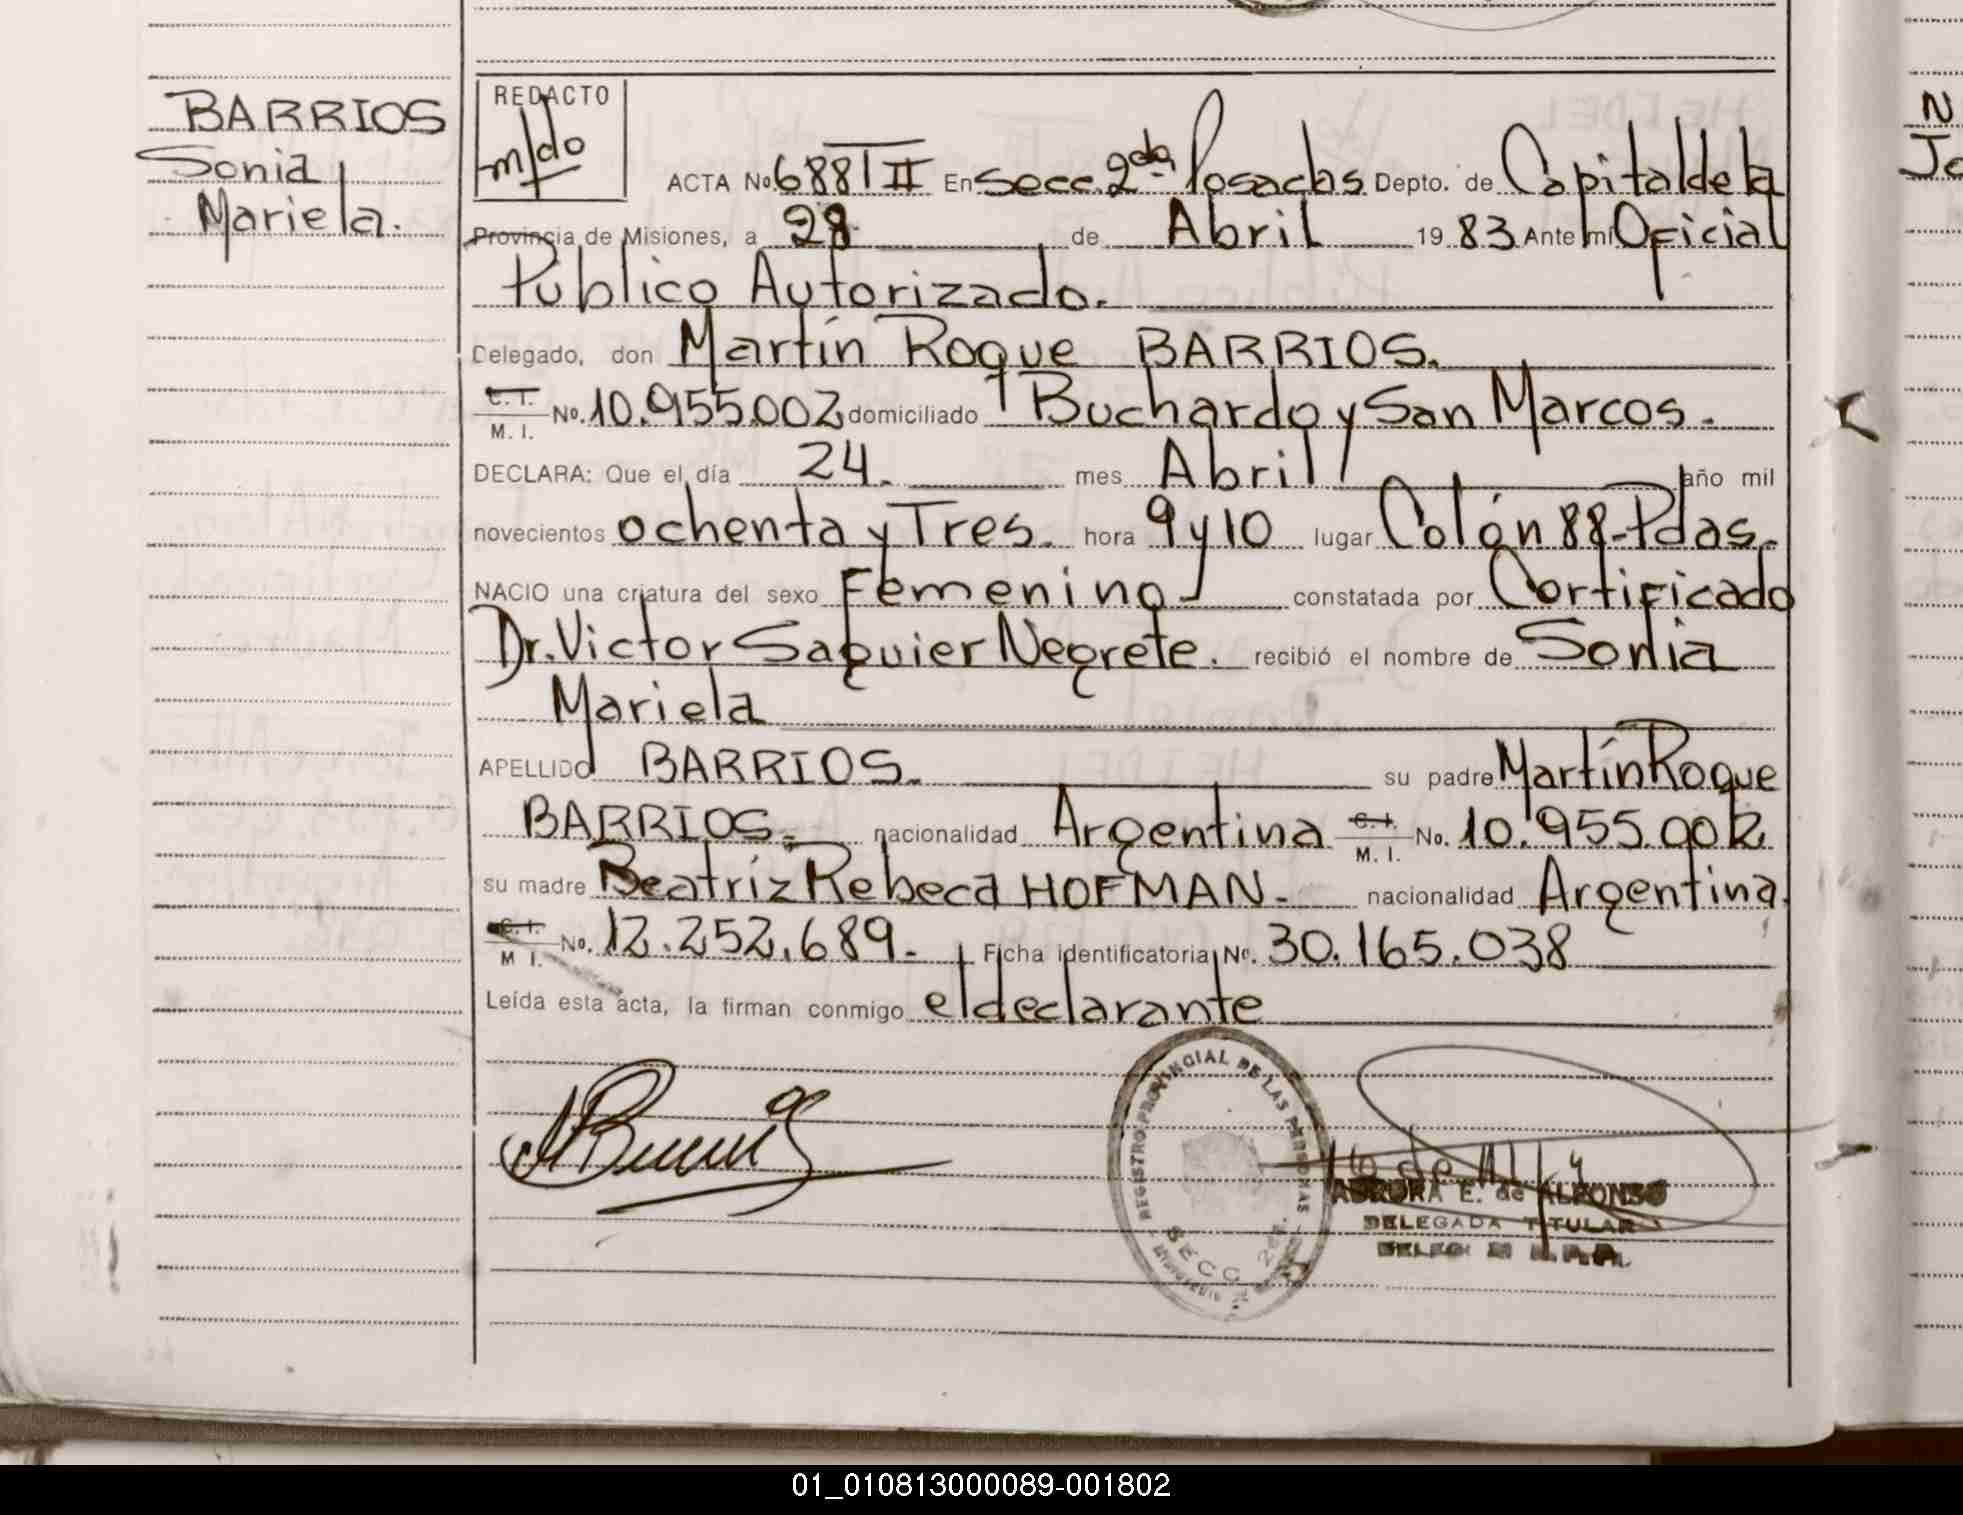 BARRIOS
Sonia
Mariela.
REDACTO
m/do
ACTA No. 688 T II En Secc. 2da. Posadas Depto. de Capital de la
Provincia de Misiones, a 28 de Abril 19 83 Ante mí Oficial
Público Autorizado.
Delegado, don Martín Roque BARRIOS.
C. I.
M. I. No. 10.955.002 domiciliado Buchardo y San Marcos.
DECLARA: Que el día 24. mes Abril año mil
novecientos ochenta y Tres. hora 9 y 10 lugar Colón 88-Pdas.
NACIO una criatura del sexo Femenino constatada por Certificado
Dr. Victor Saquier Negrete. recibió el nombre de Sonia
Mariela
APELLIDO BARRIOS. su padre Martín Roque
BARRIOS. nacionalidad Argentina C. I. M. I. No. 10.955.002
su madre Beatriz Rebeca HOFMAN. nacionalidad Argentina.
C. I. M I. No. 12.252.689.- Ficha identificatoria No. 30.165.038
Leída esta acta, la firman conmigo el declarante
REGISTRO PROVINCIAL DE LAS PERSONAS
SECC. 2da.
AURORA E. de ALFONSO
DELEGADA TITULAR
N